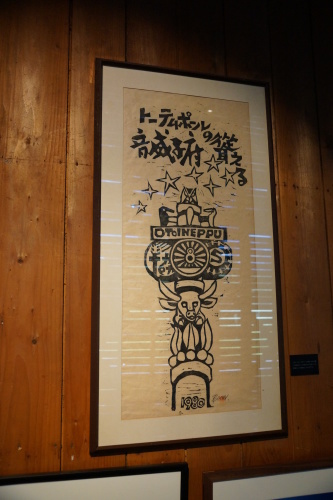 トーテムポールの
音威子府
聳える
OTOINEPPU
1980